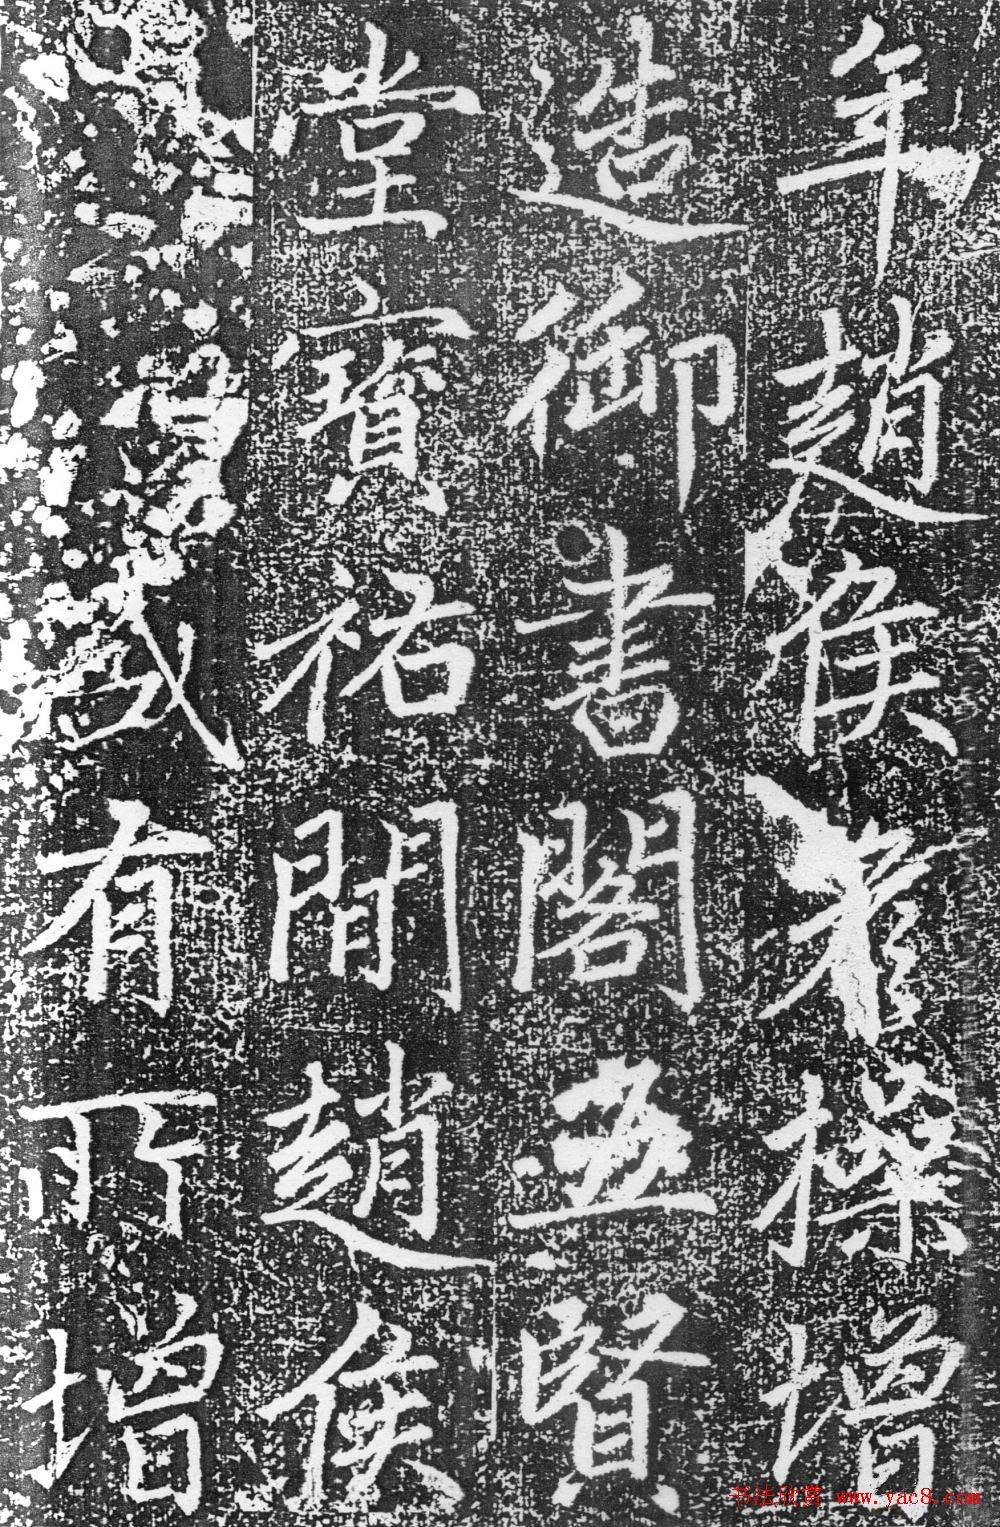 年趙侯操增
造御書閣五賢
堂寶祐間趙侯
咸有所增
书法欣赏 www.yac8.com